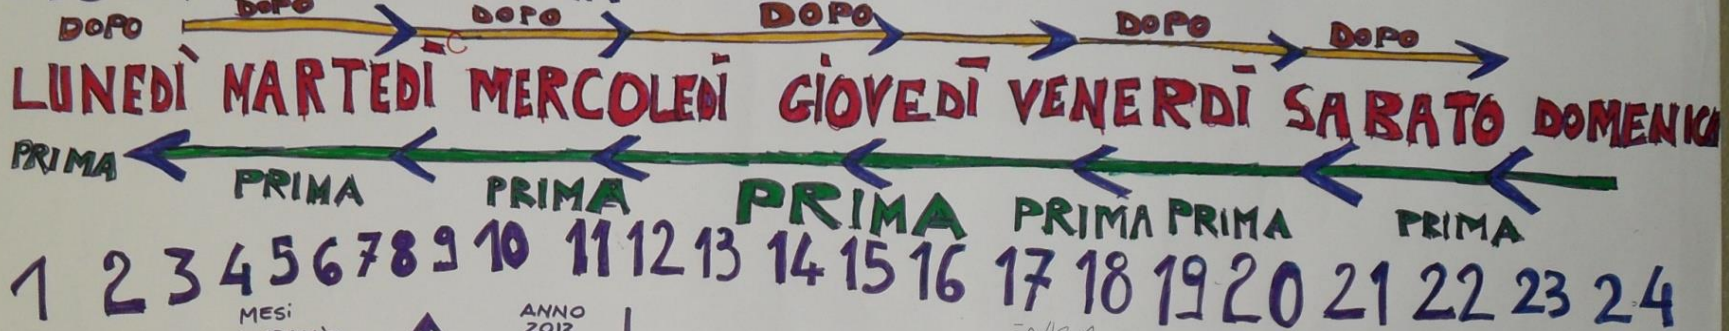 DOPO DOPO DOPO DOPO DOPO DOPO
LUNEDÌ MARTEDÌ MERCOLEDÌ GIOVEDÌ VENERDÌ SABATO DOMENICA
PRIMA PRIMA PRIMA PRIMA PRIMA PRIMA PRIMA
1 2 3 4 5 6 7 8 9 10 11 12 13 14 15 16 17 18 19 20 21 22 23 24
MESi ANNO
2012